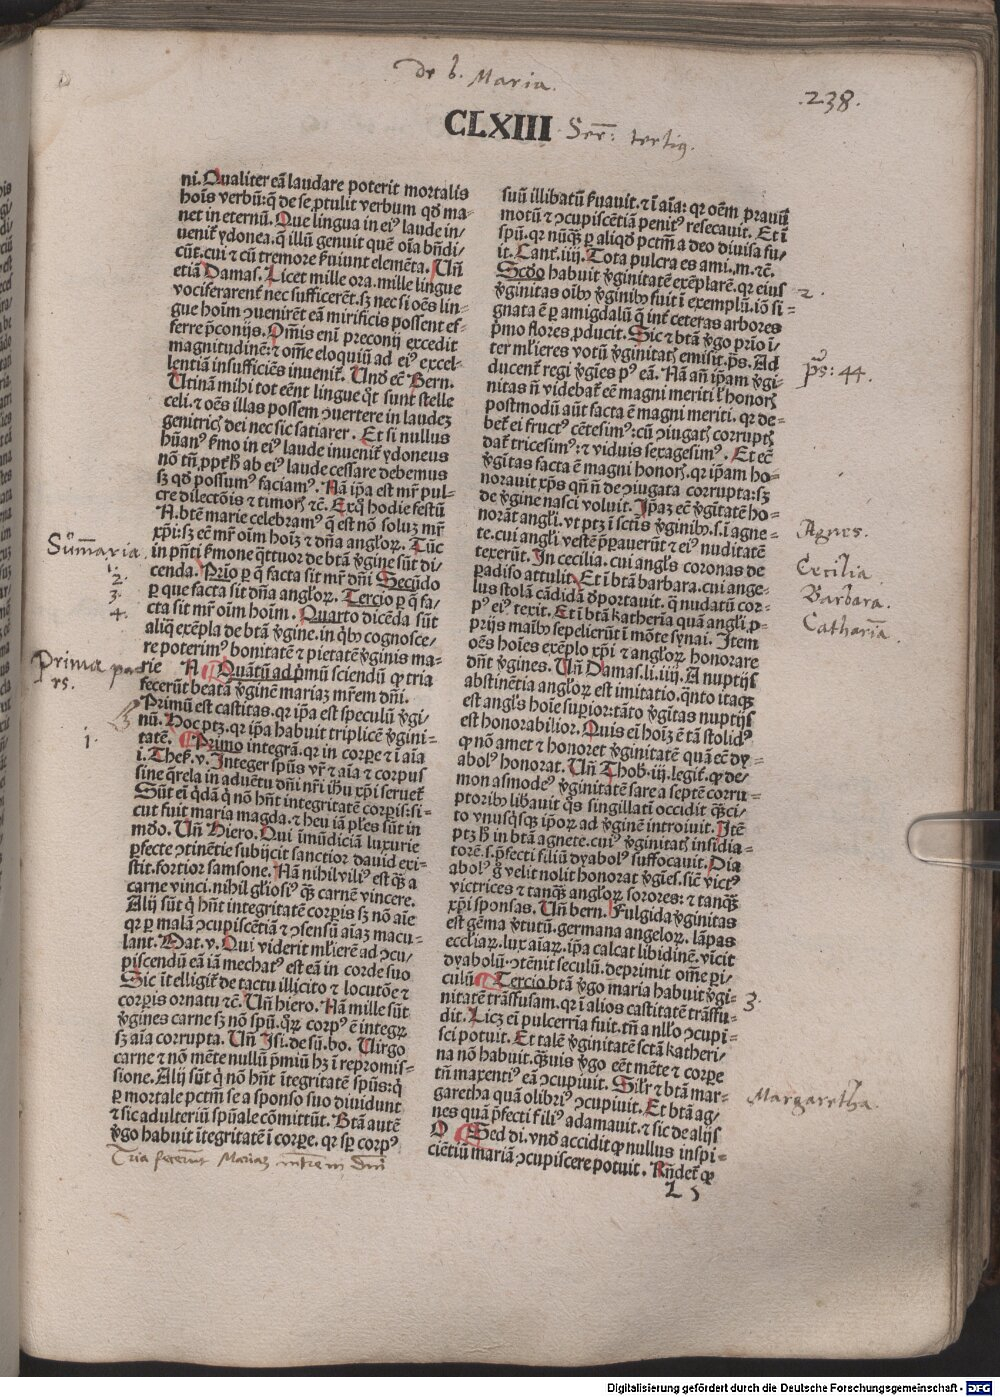 De b. Maria.
238.
CLXIII Ser: tertiꝰ.
ni. Qualiter eā laudare poterit mortalis
hoīs verbū: q̄ de se ꝓtulit verbum qd̄ ma-
net in eternū. Que lingua in eiꝰ laude in/
uenit᷑ ydonea. q̄ illū genuit quē oīa bn̄di/
cūt. cui & cū tremore ẜuiunt elemēta. Un̄
etiā Damas. Licet mille ora. mille lingue
vociferarent᷑ nec sufficerēt. sꝫ nec si oēs lin-
gue hoīm ꝯuenirēt eā mirificis possent ef-
ferre p̄conijs. Om̄is eni preconij excedit
magnitudinē: & om̄e eloquiū ad eiꝰ excel-
lentiā insufficiēs invenit᷑. Und̄ ec̄ Bern.
Utinā mihi tot eēnt lingue q̊t sunt stelle
celi. & oēs illas possem ꝯuertere in laudeꝫ
genitricꝭ dei nec sic satiarer. Et si nullus
hūanꝰ ẜmo in eiꝰ laude inuenit᷑ ydoneus
nō tn̄ ꝓpt̓ h̄ ab eiꝰ laude cessare debemus
sꝫ qd̄ possumꝰ faciamꝰ. Nā ip̄a est mr̄ pul-
cre dilectōis & timorꝭ &c̄. Exq̊ hodie festū
N. btē marie celebramꝰ q̄ est nō soluꝫ mr̄
xp̄i: sꝫ ec̄ mr̄ oīm hoīꝫ & dn̄a angloꝝ. Tūc
in pn̄ti ẜmone q̈ttuor de btā ꝟgine sūt di-
cenda. Prīo ꝑ q̄ facta sit mr̄ dn̄i Secūdo
ꝑ que facta sit dn̄a angloꝝ. Tercio ꝑ q̄ fa/
cta sit mr̄ oīm hoīm. Quarto dicēda sūt
aliq̈ exēpla de btā ꝟgine. in q̇bꝰ cognosce/
re poterimꝰ bonitatē & pietatē ꝟginis ma-
rie N Quātū ad p̄mū sciendū ꝙ tria
fecerūt beatā ꝟginē mariaꝫ mr̄em dn̄i.
Primū est castitas. qr ip̄a est speculū ꝟgi/
nū. Hoc ptꝫ. qr ip̄a habuit triplicē ꝟgini-
tatē. Primo integrā. qr in corꝑe & ī aīa
i. Thes̄. v. Integer sp̄us vr̄ & aīa & corpus
sine q̄rela in aduētu dn̄i nr̄i ih̄u xp̄i seruet᷑
Sūt eī q̇dā q̇ nō hn̄t integritatē corꝑis: si-
cut fuit maria magda. & heu iā pl̄es sūt in
mdo. Un̄ Hiero. Qui īmūdiciā luxurie
ꝑfecte ꝯtinētie subijcit sanctior dauid exi-
stit. fortior samsone. Nā nihil viliꝰ est q̄ꝫ a
carne vinci. nihil gl̄iosiꝰ q̄ꝫ carnē vincere.
Alij sūt q̇ hn̄t integritatē corꝑis sꝫ nō aīe
qr ꝑ malā ꝯcupiscētiā & ꝯsensū aīaꝫ macu-
lant. Mat. v. Qui viderit ml̓ierē ad ꝯcu/
piscendū eā iā mechatꝰ est eā in corde suo
Sic īt̓elligit᷑ de tactu illicito & locutōe &
corꝑis ornatu &c̄. Un̄ hiero. Nā mille sūt
ꝟgines carne sꝫ nō sp̄u. q̇ꝝ corpꝰ ē integrꝫ
sꝫ aīa corrupta. Un̄ Isi. de sū. bo. Virgo
carne & nō mēte nullū p̄miū hꝫ ī repromis-
sione. Alij sūt q̇ nō hn̄t ītegritatē sp̄us: q̇
ꝑ mortale pctm̄ se a sponso suo diuidunt
& sic adulteriū sp̄uale cōmittūt. Btā autē
ꝟgo habuit ītegritatē ī corꝑe. qr sꝑ corpꝰ
suū illibatū ẜuauit. & ī aīa: qr oēm prauū
motū & ꝯcupiscētiā penitꝰ resecauit. Et ī
spū. qr nūq̄ꝫ ꝑ aliqd̄ pctm̄ a deo diuisa fu/
it. Cant. iiij. Tota pulcra es ami. m. &c̄.
Scd̄o habuit ꝟginitatē exēplarē. qr eius
ꝟginitas oībꝰ ꝟginibꝰ fuit ī exemplū. iō si-
gnata ē ꝑ amigdalū q̄ int̓ ceteras arbores
p̄mo flores ꝓducit. Sic & btā ꝟgo prīo ī-
ter ml̓ieres votū ꝟginitatꝭ emisit. ps̄. Ad
ducent᷑ regi ꝟgīes pꝰ eā. Nā an̄ ip̄am ꝟgi-
nitas n̄ videbat᷑ eē magni meriti l̓ honorꝭ
postmodū aūt facta ē magni meriti. qr de-
bet᷑ ei fructꝰ cētesimꝰ: cū ꝯiugatꝭ corruptꝭ
dat᷑ tricesimꝰ: & viduis sexagesimꝰ. Et ec̄
ꝟgītas facta ē magni honorꝭ. qr ip̄am ho-
norauit xp̄s qn̄ n̄ de ꝯiugata corrupta: sꝫ
de ꝟgine nasci voluit. Ip̄aꝫ ec̄ ꝟgītatē ho-
norāt angl̓i. vt ptꝫ ī sctīs ꝟginibꝰ. s. ī agne-
te. cui angl̓i vestē p̄parauerūt & eiꝰ nuditatē
texerūt. In cecilia. cui angl̓s coronas de
paradiso attulit. Et ī btā barbara. cui ange-
lus stolā cādidā dꝑortauit. q̄ nudatū cor-
pꝰ eiꝰ texit. Et ī btā katherīa quā angl̓i ꝓ-
prijs maībꝰ sepelierūt ī mōte synai. Item
oēs hoīes exēplo xp̄i & angloꝝ honorare
dn̄t ꝟgines. Un̄ Damas. li. iiij. A nuptijs
abstinētia angloꝝ est imitatio. q̈nto itaqꝫ
est angl̓s hoīe superior: tāto ꝟgītas nuptijs
est honorabilior. Quis ei hoīꝫ ē tā stolidꝰ
ꝙ nō amet & honoret ꝟginitatē quā ec̄ dy-
abolꝰ honorat. Un̄ Thob. iij. legit᷑. ꝙ de/
mon asmodeꝰ ꝟginitatē sare a septē corru-
ptoribꝰ libauit q̇s singillatī occidit q̄ꝫci/
to vnusq̇sqꝫ ip̄oꝝ ad ꝟginē introiuit. Itē
ptꝫ h̄ in btā agnete. cuiꝰ ꝟginitatꝭ insidia-
torē. s. p̄fecti filiū dyabolꝰ suffocauit. Dia
abolꝰ g̊ velit nolit honorat ꝟgīes. sic̄ victꝰ
victrices & tanq̄ꝫ angloꝝ sorores: & tanq̄ꝫ
xp̄i sponsas. Un̄ bern. Fulgida ꝟginitas
est gēma ꝟtutū. germana angeloꝝ. lāpas
eccl̓iaꝝ. lux aīaꝝ. ip̄a calcat libidinē. vīcit
dyabolū. ꝯtēnit seculū. deprimit om̄e ꝑi/
culū Tercio btā ꝟgo maria habuit ꝟgi-
nitatē trāsfusam. qr ī alios castitatē trāsfu-
dit. Licꝫ eī pulcerrīa fuit. tn̄ a nll̓o ꝯcupi-
sci potuit. Et talē ꝟginitatē sctā katheri/
na nō habuit. q̄ꝫuis ꝟgo eēt mēte & corꝑe
tn̄ maxentiꝰ eā ꝯcupiuit. Sil̓r & btā mar-
garetha quā olibriꝰ ꝯcupiuit. Et btā ag/
nes quā p̄fecti filiꝰ adamauit. & sic de alijs
O Sed di. vnd̄ accidit ꝙ nullus inspi-
ciētiū mariā ꝯcupiscere potuit. Rn̄det᷑ ꝙ
L 5
Sūmaria.
1.
2.
3.
4.
Prima pa
rs.
1.
2.
ps: 44.
Agnes.
Cecilia
Barbara.
Catharīa.
3.
Margaretha.
Tria fecerunt Mariaꝫ matrem dn̄i
Digitalisierung gefördert durch die Deutsche Forschungsgemeinschaft - DFG